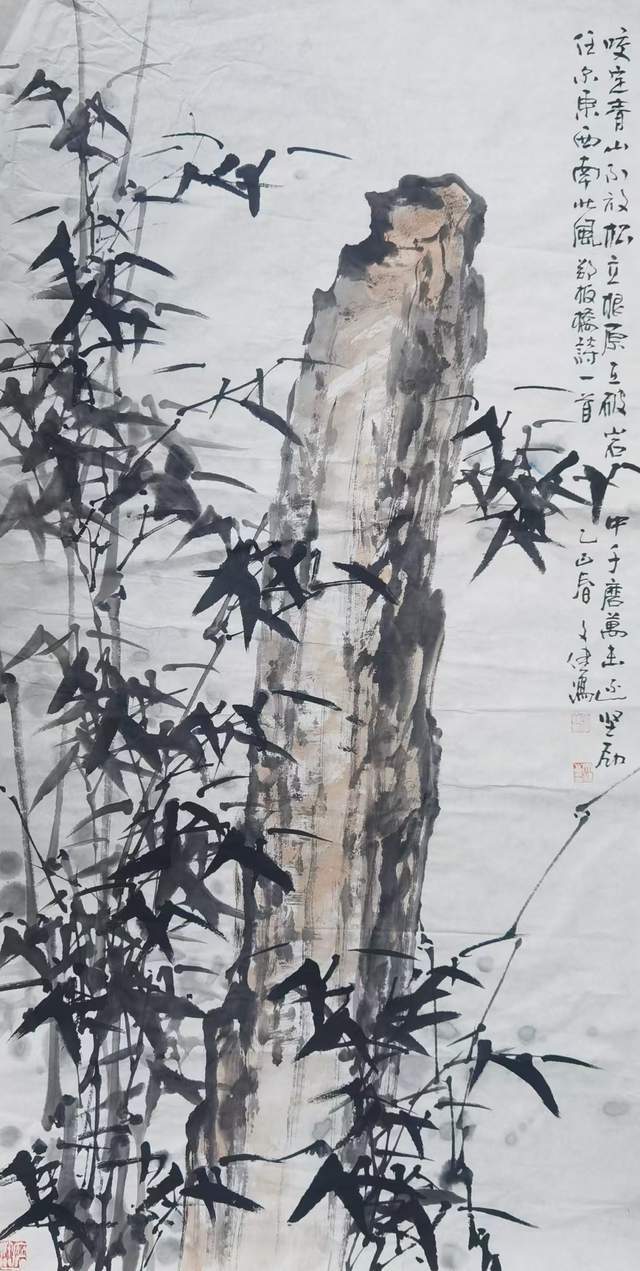 咬定青山不放松立根原在破岩中千磨萬击还坚劲
任尔東西南北風郑板橋詩一首 乙巳春 文健寫